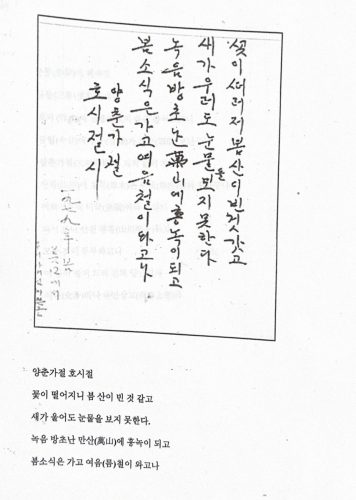 꽃이 떠러저 봄 산이 빈 거 갓고
새가 우러도 눈물을 보지 못한다
녹음방초 난 萬山에 홍녹이 되고
봄소식은 가고 여음철이 와고나
양춘가절
호시절시
양춘가절 호시절
꽃이 떨어지니 봄 산이 빈 것 같고
새가 울어도 눈물을 보지 못한다.
녹음 방초난 만산(萬山)에 홍녹이 되고
봄소식은 가고 여음(름)철이 와고나